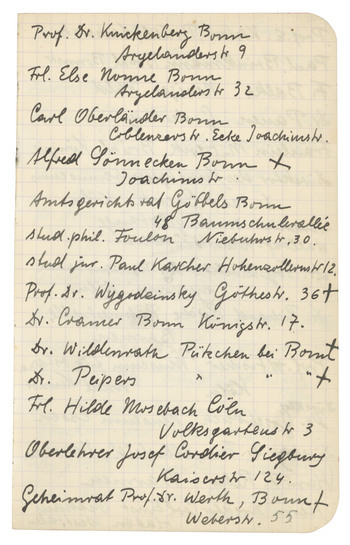 Prof. Dr. Knickenberg Bonn
Argelanderstr 9
Frl. Else Nonne Bonn
Argelanderstr 32
Carl Oberländer Bonn
Coblenzerstr. Ecke Joachimstr.
Alfred Sönnecken Bonn +
Joachimstr.
Amtsgerichtsrat Göbbels Bonn
48 Baumschulerallée
stud. phil. Foulon Niebuhrstr. 30.
stud jur. Paul Karcher Hohenzollernstr 12.
Prof. Dr. Wygodzinsky Göthestr. 36 +
Dr. Cramer Bonn Königstr. 17.
Dr. Wildenrath Pützchen bei Bonn +
Dr. Peipers " " " +
Frl. Hilde Mosebach Cöln
Volksgartenstr 3
Oberlehrer Josef Cordier Siegburg
Kaiserstr 124.
Geheimrat Prof. Dr. Werth, Bonn +
Weberstr. 55